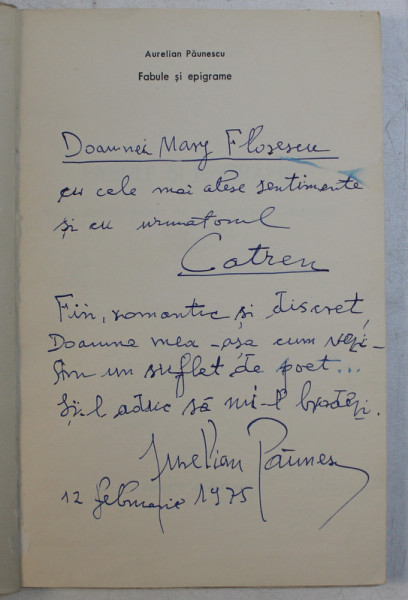 Aurelian Păunescu
Fabule și epigrame
Doamnei Mary Florescu
cu cele mai alese sentimente
și cu urmatorul
Catren
Fin, romantic și discret,
Doamna mea – așa cum vezi –
Am un suflet de poet...
Și-l aduc să mi-l
Aurelian Păunescu
12 februarie 1975